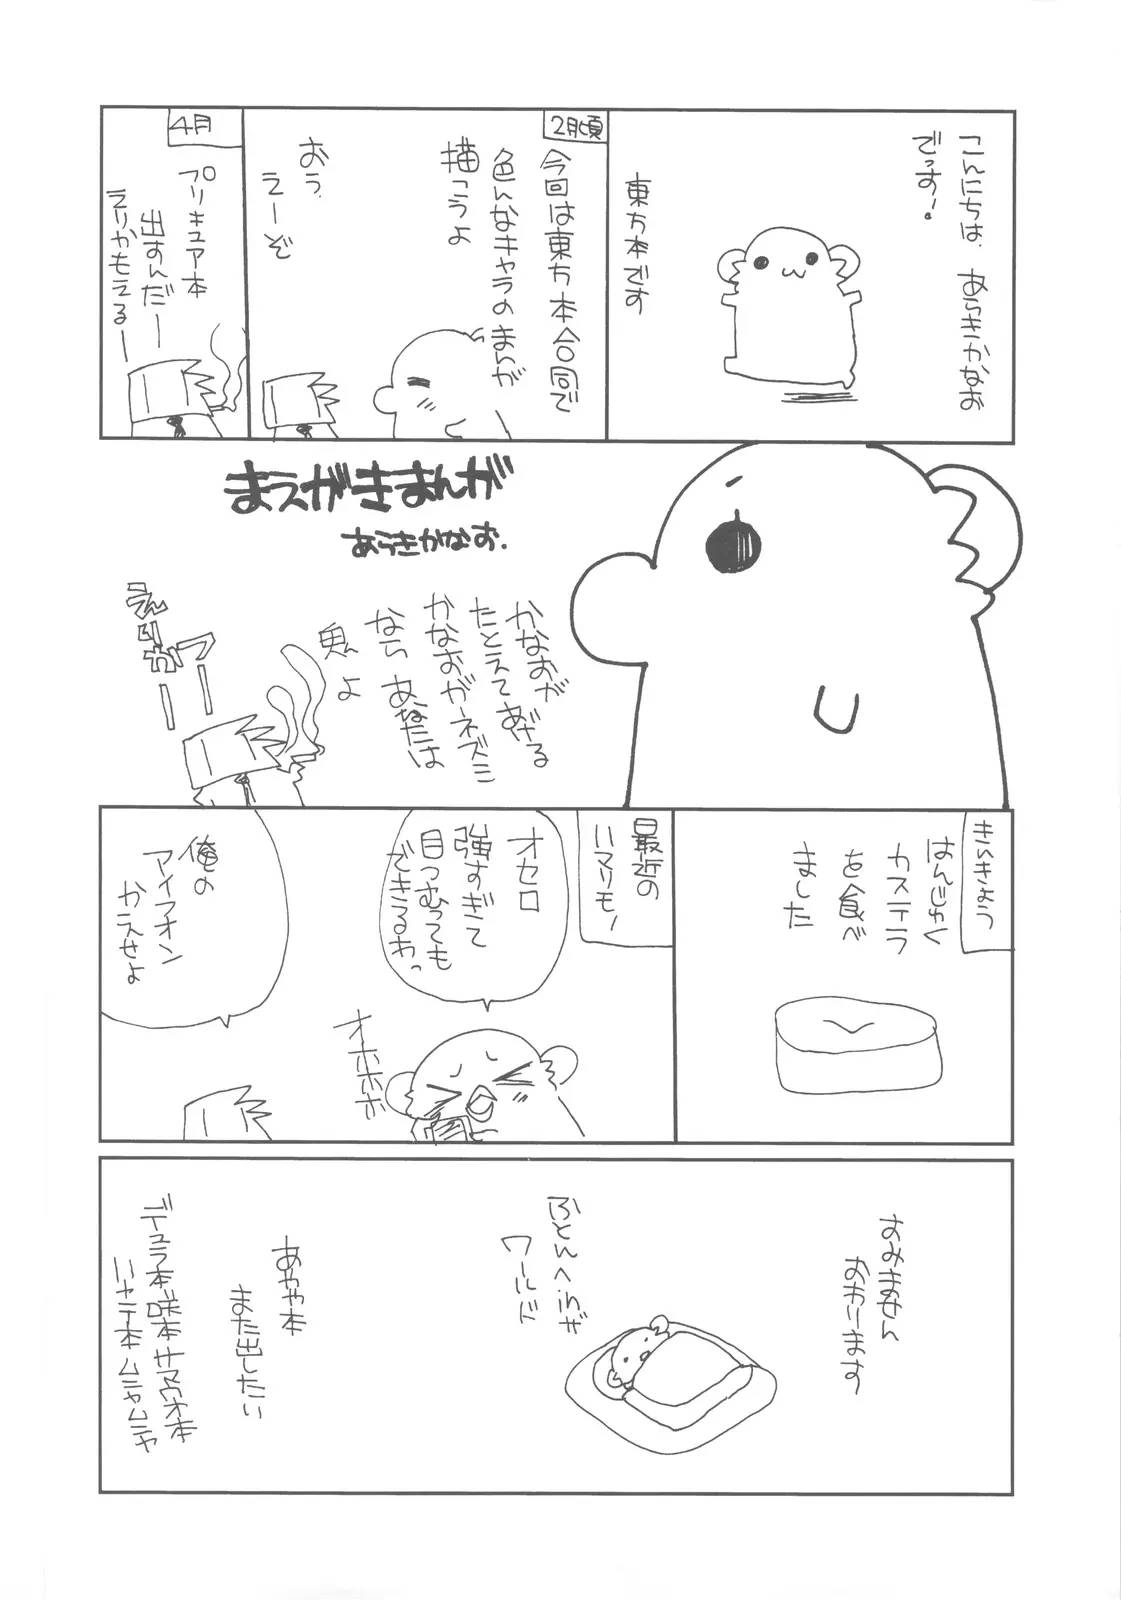 こんにちは、あらきかなお
でっす!
東方本です
2月頃
今回は東方本合同で
色んなキャラのまんが
描こうよ
おう、
えーぞ
4月
プリキュア本
出すんだー
えりかもえるー
まえがきまんが
あらきかなお.
かなおが
たとえてあげる
かなおがネズミ
なら あなたは
魚よ
えりかー
つー
きんきょう
はんじゅく
カステラ
を食べ
ました
最近の
ハマリモノ
オセロ
強すぎて
目つむっても
できるわっ
オホホホホ
俺の
アイフォン
かえせよ
すみません
おわります
ふとんへinザ
ワールド
あやや本
また出したい
デュラ本 咲本 サマウォ本
いャテ本 ムニャムニャ